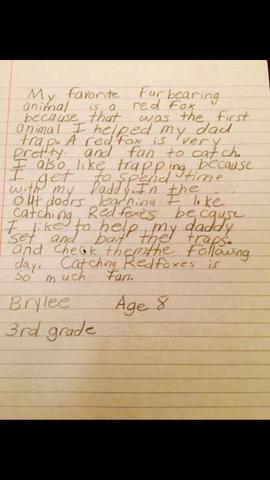 My favorite Furbearing
animal is a red fox
because that was the first
animal I helped my dad
trap. A redfox is very
pretty and fan to catch.
I also like trapping because
I get to spend time
with my Daddy. In the
outdoors learning. I like
catching Redfoxes because
I like to help my daddy
set and bait the traps.
and check themthe following
day. Catching Redfoxes is
so much fan.
Brylee Age 8
3rd grade